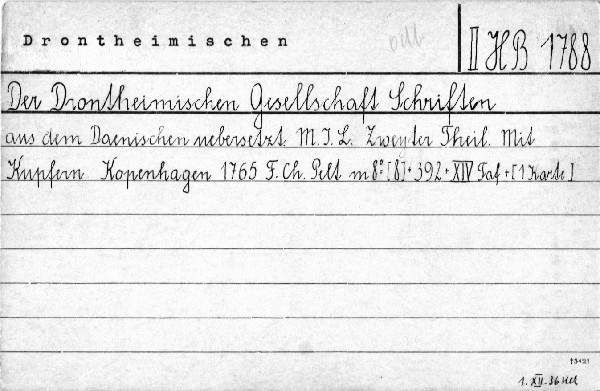 Drontheimischen
II HB 1788
Der Drontheimischen Gesellschaft Schriften
aus dem Daenischen uebersetzt. M.I.L. Zweyter Theil. Mit
Kupfern Kopenhagen 1765 F. Ch. Pelt m 8° [8] + 392 + XIV Taf + [1 Karte]
1. XII. 36